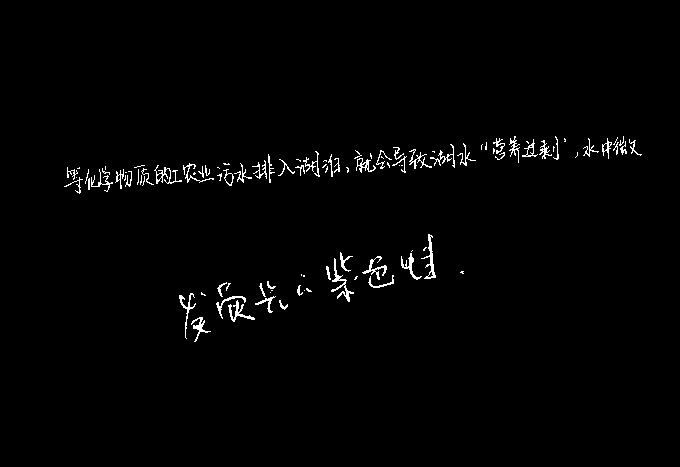 等化学物质的工农业污水排入湖泊,就会导致湖水“营养过剩”,水中微
发员长:紫色